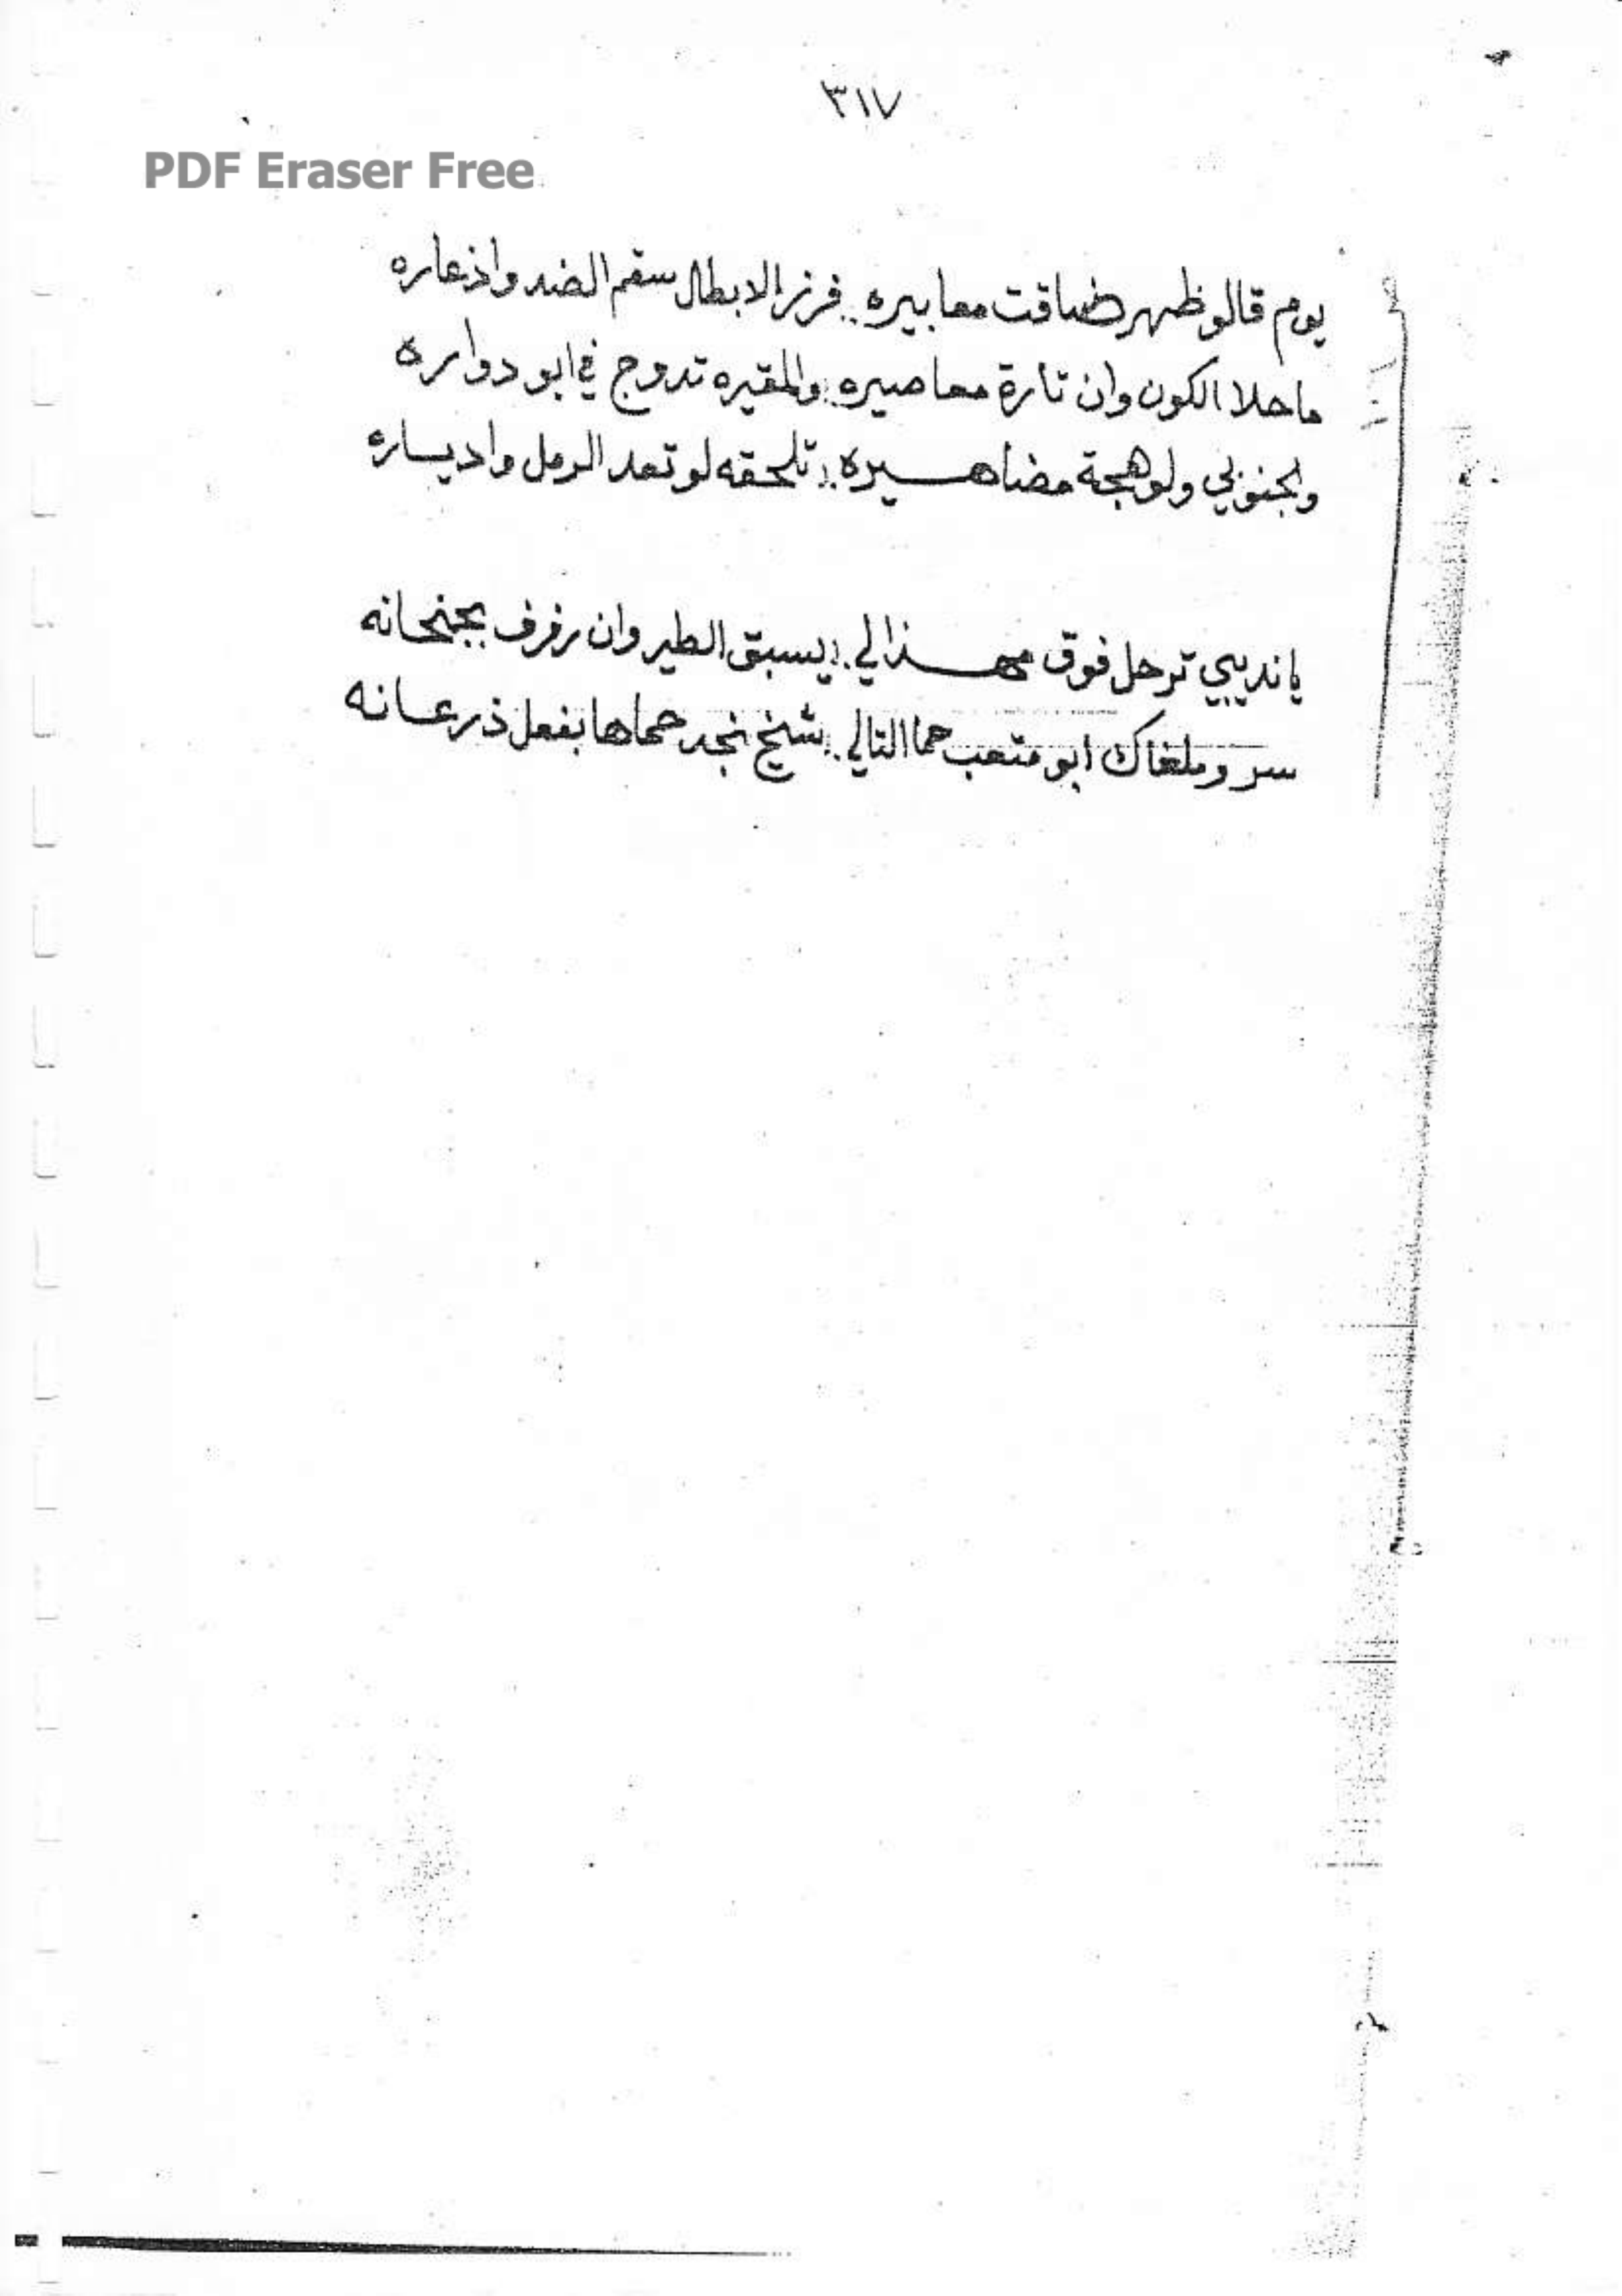 ٣١٧
PDF Eraser Free
يوم قالو ظهر ضاقت معابيره .. فرز الابطال سقم الضد واذعاره
ماحلا الكون وان تارة معاصيره .. والمقيره تدوج في ابو دواره
ولجنوبي ولو هجة مضاهسيره .. تلحقه لو تعد الرمل واديساره
يا نديبي ترحل فوق مهذالي .. يسبق الطير وان رفرف بجنحانه
سر وملفاك ابو متعب حما التالي .. شيخ نجد حماها بفعل ذرعانه